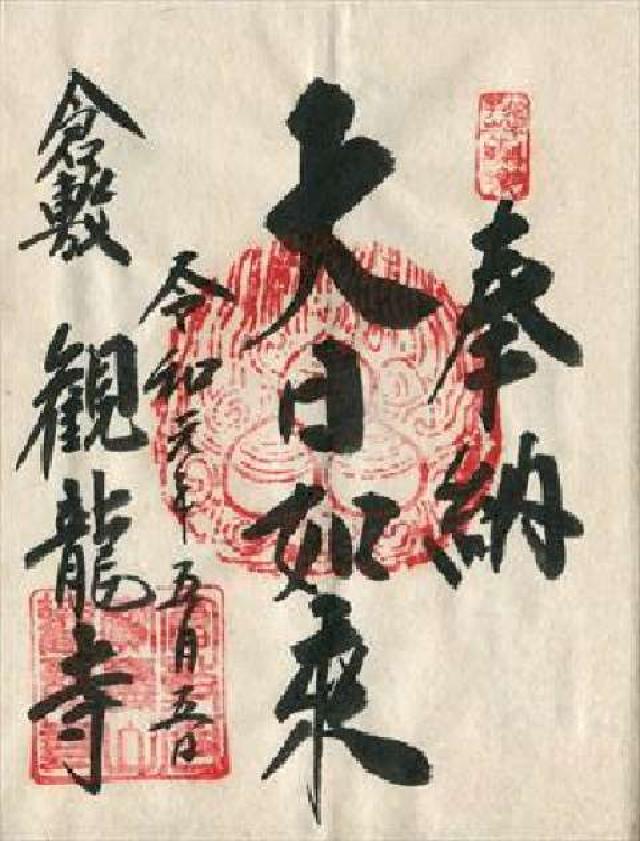 奉納
大日如来
令和元年五月五日
倉敷 観龍寺